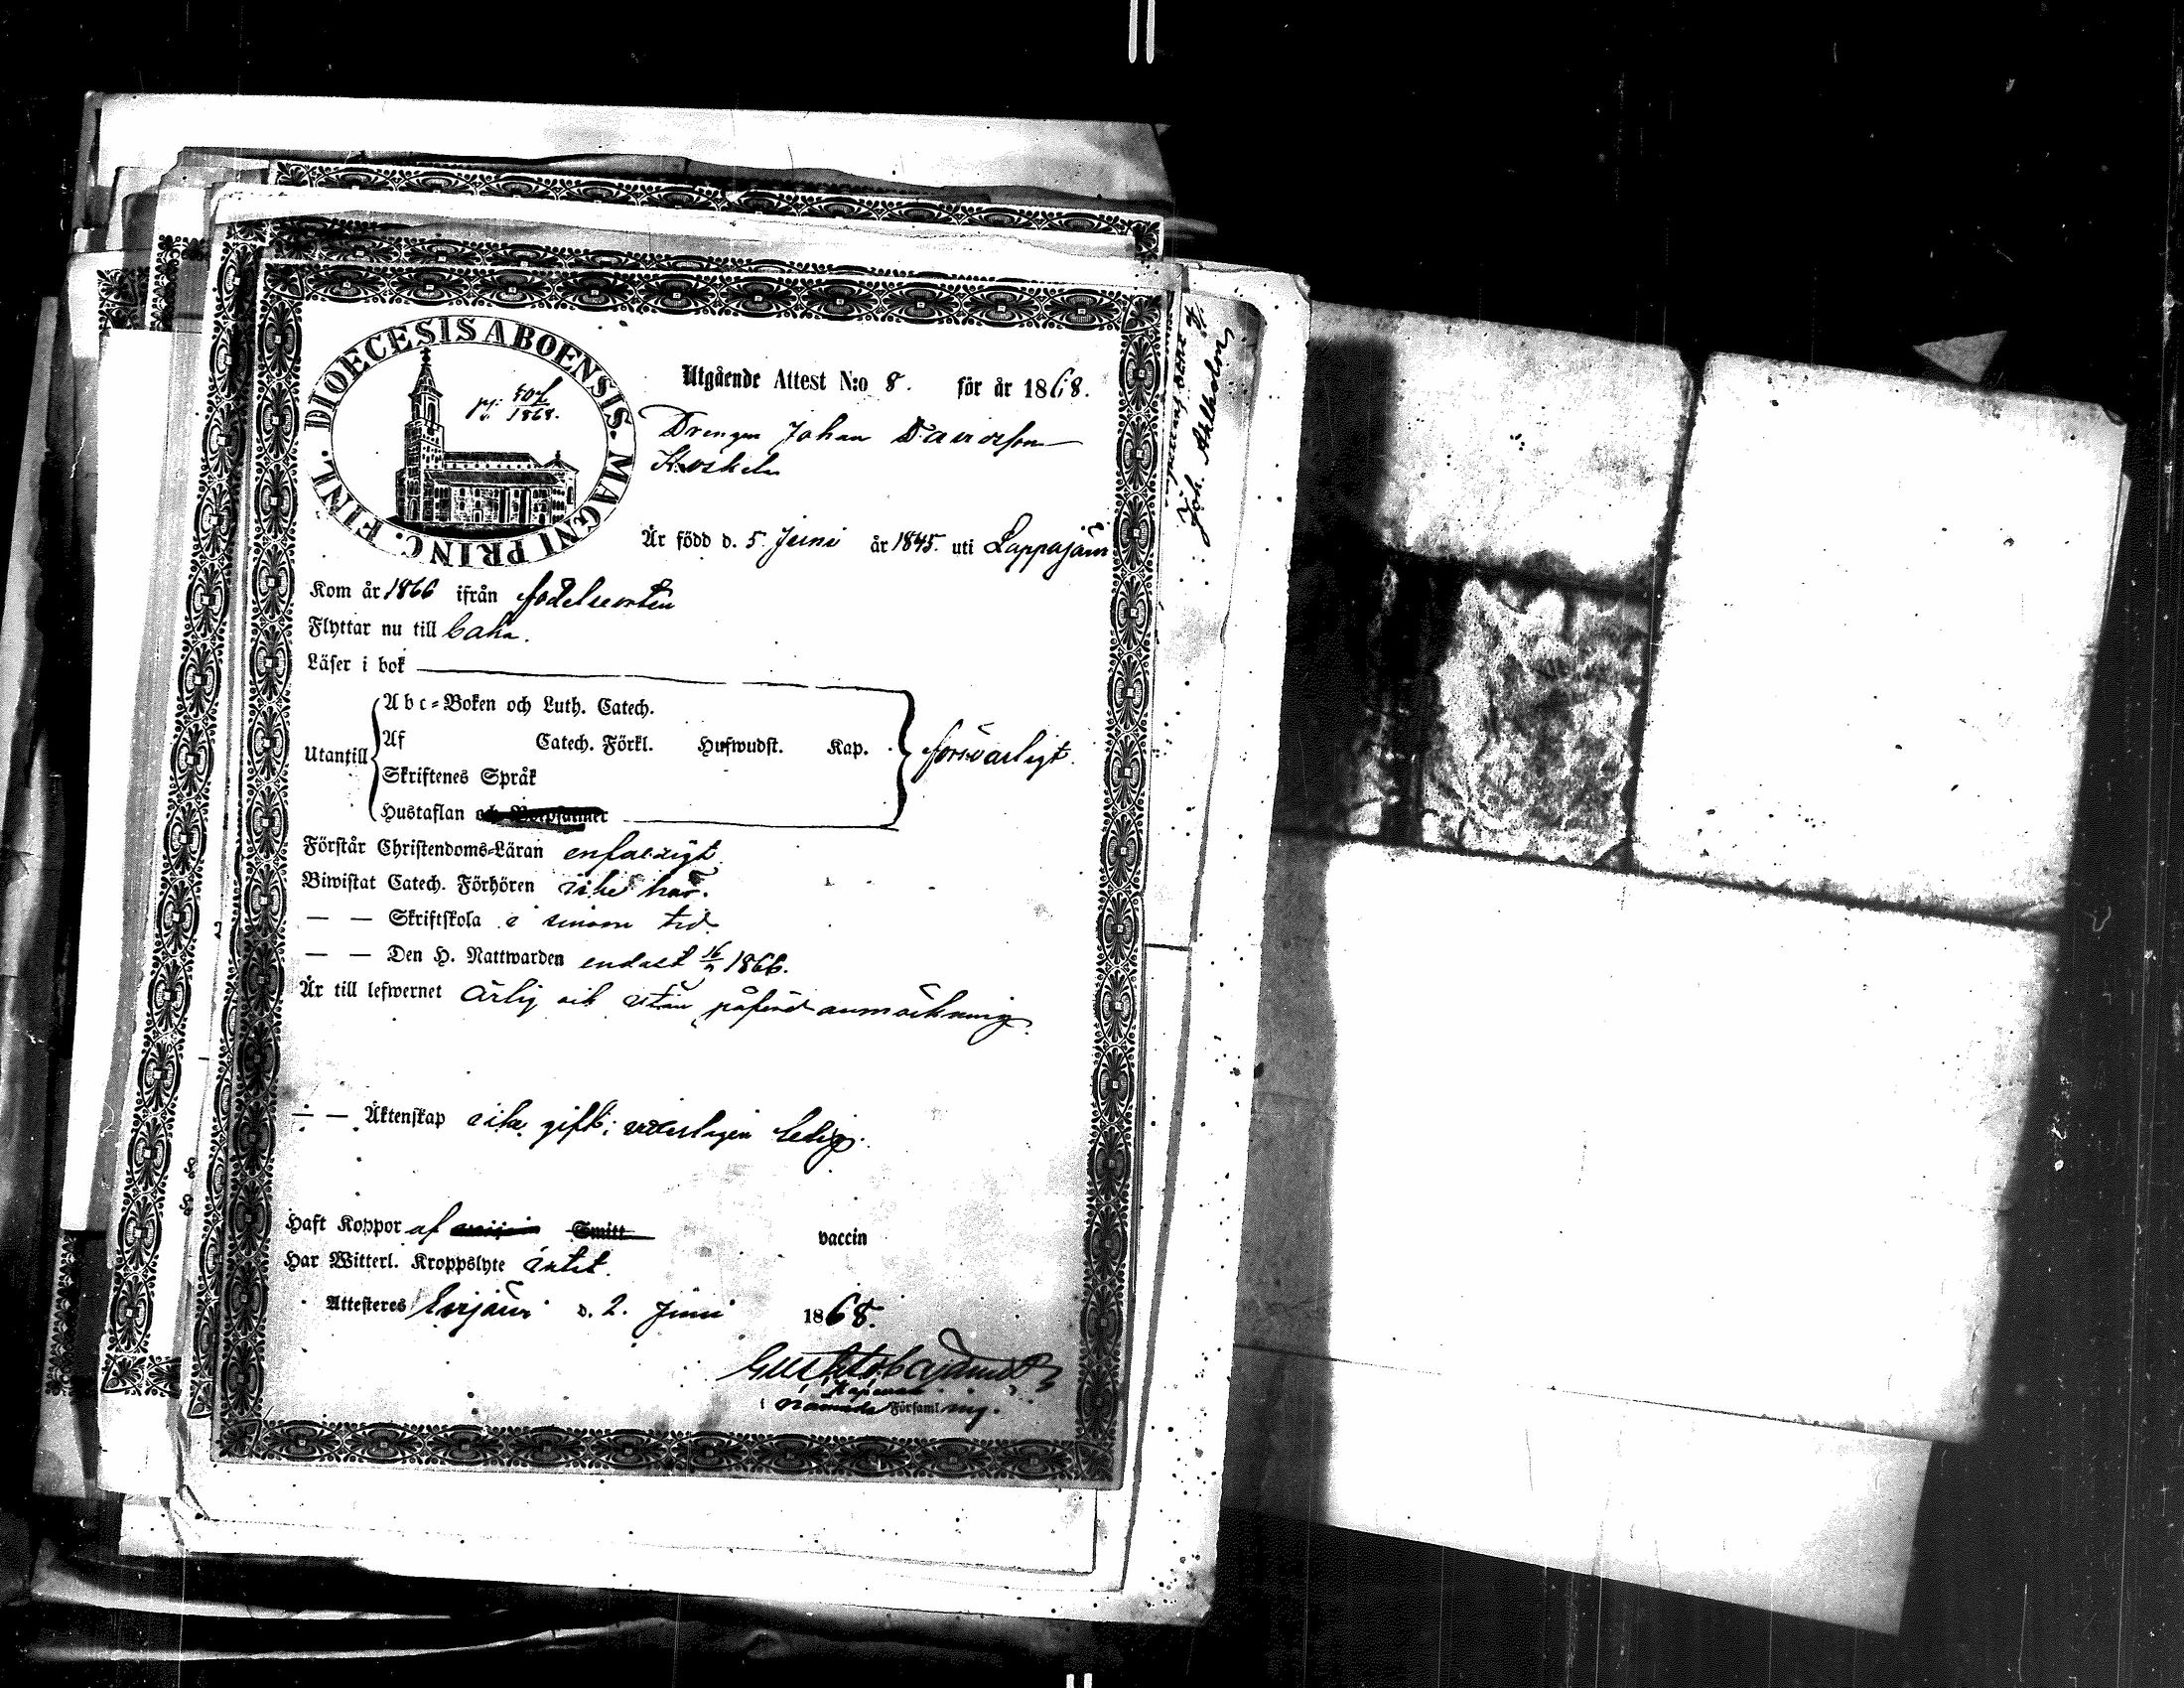 DIOECESIS ABOENSIS. MAGNI PRINC. FINL.
1868.
Utgående Attest N:o 8. för år 1868.
Drengen Johan Davidsson
Koskela
Är född d. 5 Juni år 1845. uti Lappajärvi
Kom år 1866 ifrån födelseorten
Flyttar nu till
Läser i bok
Abc-Boken och Luth. Catech.
Utantill Af Catech. Förkl. Hufwudst. Kap. försvarligt.
Skriftenes Språk
Hustaflan och
Förstår Christendoms-Läran enfaldigt
Biwistat Catech. Förhören icke här.
— — Skriftskola i sinom tid
— — Den H. Nattwarden endast 1866.
Är till lefwernet ärlig och utan påförd anmärkning.
— — Äktenskap icke gift; ledig.
Haft Koppor af Smitt vaccin
Har Witterl. Kroppslyte intet.
Attesteras Evijärvi d. 2. Juni 1868.
Kapellan
i nämnde Församling.
Joh. Ahlholm